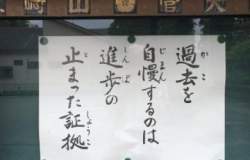 過去を
自慢するのは
進歩の
止まった証拠
かこ
じまん
しんぽ
と
しょうこ